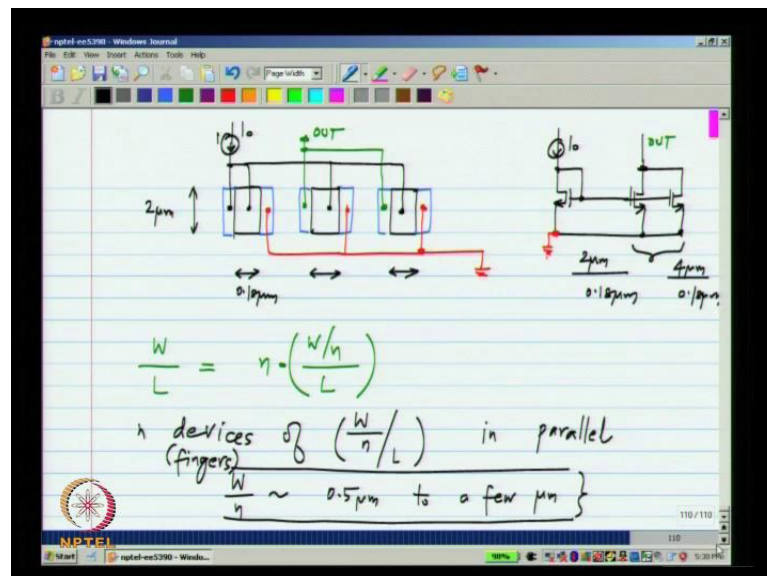 nptel-ee5390 - Windows Journal
File Edit View Insert Actions Tools Help
Page Width
B I
I0
OUT
2μm
0.18μm
I0
OUT
2μm
0.18μm
4μm
0.18μm
W/L = n·(W/n / L)
n devices of (W/n / L) in parallel
(fingers)
W/n ~ 0.5μm to a few μm }
110/110
110
NPTEL
Start
nptel-ee5390 - Windo...
98%